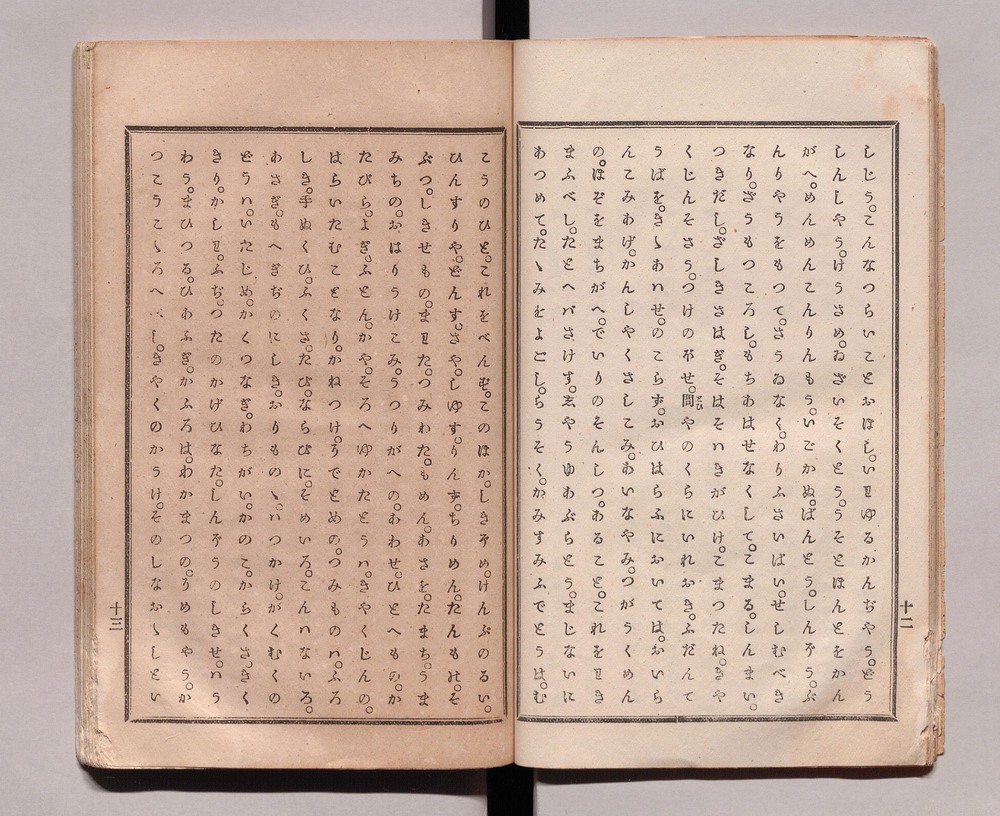 しじう。こんなつらいことおぼし。いわゆるかんぢやう。どう
しんしやう。けうさめ。ゐざいそくとう。うそとほんとをかん
がへ。めんめんこんりんもう。いごかぬ。ばんとう。しんぞう。ぶ
んりやうをもつて。さうゐなく。わりふさいばい。せしむべき
なり。ざうもつころし。もちあはせなくして。こまる。しんまい。
つきだし。ざしきさはぎ。そはそハきがひけ。こまつたね。きや
くじんそさう。つけのぼせ。問とひやのくらにいれおき。ふだんて
うばを。きゝあハせ。のこらず。おひはらふにおいては。おいら
んこみあげ。かんしやくさしこみ。あいなやみ。つがうくめん
の。ほぞをまちがへ。でいりのそんしつ。あること。これをわき
まふべし。たとへバさけす。志やうゆあぶらとう。まじないに
あつめて。たゝみをよごし。らうそく。かみすみふでとうは。む
十二
こうのひと。これをべんず。このほか。しきぞめ。けんぶのるい。
ひんすりや。どんす。さや。しゆす。りんず。ちりめん。たんもの。そ
ぶつ。しきせもの。まわた。つみわた。もめん。あさを。たまち。うま
みちの。おはりうけこみ。うつりがへの。あわせ。ひとへもの。か
たびら。よぎ。ふとん。かや。そろへゆかたとうハ。きやくじんの。
はらいたむことなり。かねつけ。ろでとめの。つみものハ。ふろ
しき。手ぬくひ。ふくさ。たび。ならびに。そめいろ。こんハないろ。
あさぎ。もへぎぢのにしき。おりものゝ。ハつかけ。がくむくの
どうハ。いたじめ。かくつなぎ。わちがい。かのこ。からくさ。きく
きり。かしわ。ふぢ。つたのかげひなた。しんぞうのしきせ。ハう
わう。まひつる。ひわふぎ。かふろは。わかまつの。うめもやう。か
つこうこゝろへべし。きやくのかうけ。そのしなおゝしとい
十三